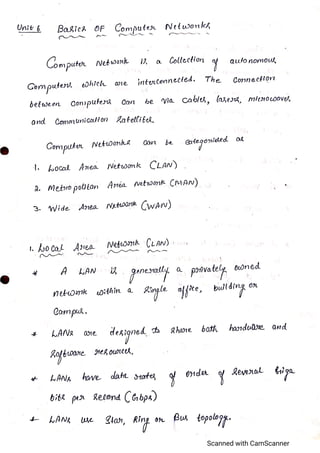 Unit 6 Basics OF Computer Networks
Computer Network is a Collection of autonomous
Computers which are interconnected. The Connection
between Computers can be via cables, lasers, microwaves,
and Communication Satellites.
Computer Networks can be categorized as
1. Local Area Network (LAN)
2. Metropolitan Area Network (MAN)
3. Wide Area Network (WAN)
1. Local Area Network (LAN)
* A LAN is generally a privately owned
network within a single office, building or
Campus.
* LANs are designed to share both hardware and
Software resources.
* LANs have data rates of order of several Giga
bits per Second (Gbps)
* LANs use Star, Ring or Bus topology.
Scanned with CamScanner